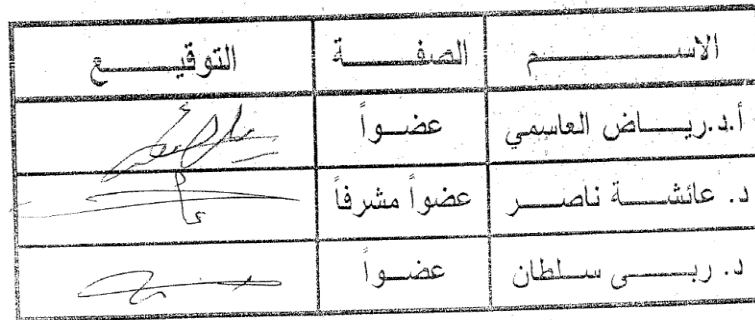 الاسم الصفة التوقيع
أ.د.رياض العاسمي عضواً
د. عائشة ناصر عضواً مشرفاً
د. ربى سلطان عضواً